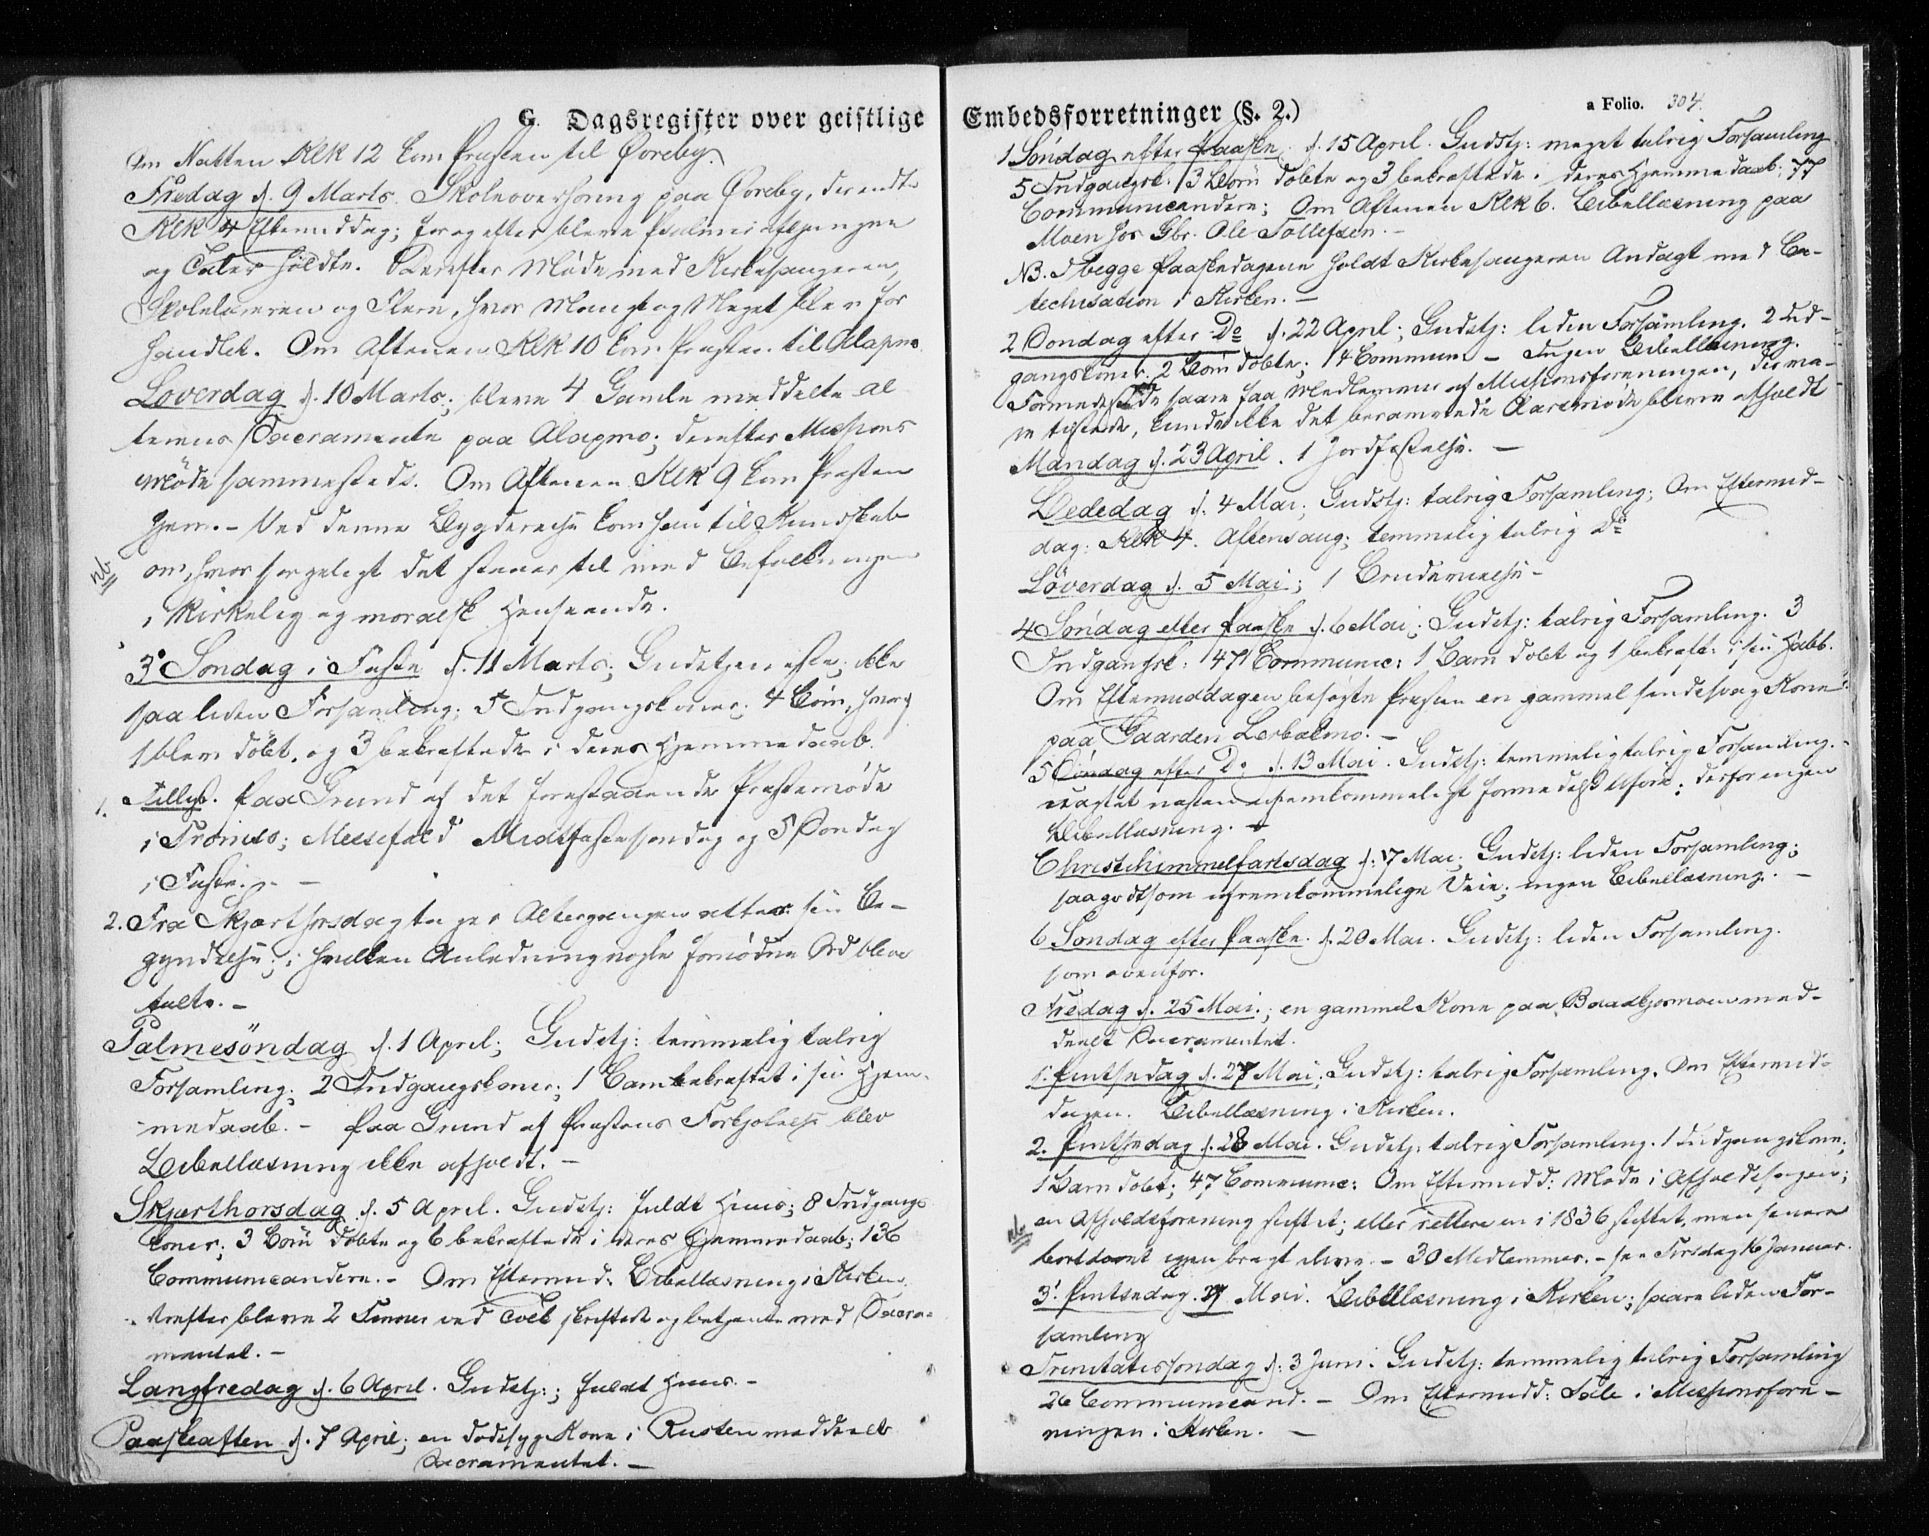 G. Dagsregister over geistlige
Om Natten Klk 12 kom Præsten til Øvreby.
Fredag d. 9 Marts. Skoleoverhøring paa Øvreby, der endte
Klk 4 Eftermiddag; før og efter bleve Psalmer afsjungne
og Taler holdte. Derefter Møde med Kirkesangeren,
Skolelæreren og Flere, hvor Mangt og Meget blev for
handlet. Om Aftenen Klk 10 kom Præsten til Alapmo.
Løverdag d. 10 Marts; bleve 4 Gamle meddelte Al
terens Sacramente paa Alapmo; derefter Missions
Møde sammesteds. Om Aftenen Klk 9 kom Præsten
hjem. - Ved denne Bygdereise kom han til Kundskab
nb
om, hvor sørgeligt det staaer til med Befolkningen
i Kirkelig og moralsk Henseende.
3. Søndag i Faste d. 11 Marts; Gudstjeneste; ikke
saa liden Forsamling; 5 Indgangskoner; 4 Børn, hvoraf
1 blev døbt, og 3 bekræftede i deres Hjemmedaab.
1. Tillyst. Paa Grund af det forestaaende Præstemøde
i Tromsø; Messefald Midfastesøndag og 5 Søndag
i Faste. -
2. Fra Skjærthorsdag tager Altergangen atter sin Be-
gyndelse; i hvilken Anledning nogle fornødne Ord bleve
talte. -
Palmesöndag d. 1 April; Gudstj: temmelig talrig
Forsamling; 2 Indgangskoner; 1 Barn bekræftet i sin Hjem-
medaab. - Paa Grund af Præstens Forkjølelse blev
Bibellæsning ikke afholdt. -
Skjærthorsdag d. 5 April. Gudstj: fuldt Huus; 8 Indgangs
koner; 3 Børn døbte og 6 bekræftede i deres Hjemmedaab; 136
Communicandere. - Om Eftermid. Bibellæsning i Kirken,
derefter bleve 2 Finner ved skriftede og betjente med Sacra-
mentet. -
Langfredag d. 6 April. Gudstj:; fuldt Huus. -
Paaskeaften d. 7 April; en dødssyg Kone i Rusten meddeelt
Sacramentet. -
Embedsforretninger (§. 2.)
a Folio. 304.
1 Söndag efter Paaske. d. 15 April. Gudstj: meget talrig Forsamling
5 Indgangsk. 13 Børn døbte og 3 bekræftede i deres Hjemmedaab; 77
Communicandere; Om Aftenen Klk 6. Bibellæsning paa
Moen hos Gbr. Ole Tollefsen. -
NB. I begge Paaskedagene holdt Kirkesangeren Andagt med Ca-
techisation i Kirken. -
2 Söndag efter Do d. 22 April; Gudstj: liden Forsamling. 2 Ind-
gangskoner. 2 Børn døbte; 14 Commun. - Ingen Bibellæsning.
Formedelst de saare faa Medlemmer af Missionsforeningen, der va-
re tilstede, kunde ikke det berammede Aarsmøde blive afholdt
Mandag d. 23 April. 1 Jordfæstelse. -
Bededag d. 4 Mai; Gudstj: talrig Forsamling; Om Eftermid-
dag: Klk 4. Aftensang; temmelig talrig Do
Löverdag d. 5 Mai; 1 Brudevielse -
4 Söndag efter Paaske d. 6 Mai; Gudstj: talrig Forsamling. 3
Indgangsk: 47 Communic: 1 Barn døbt og 1 bekræft: i sin Hdb.
Om Eftermiddagen besøgte Præsten en gammel sindssvag Kone
paa Gaarden Lerbakmo. -
5 Söndag efter Do d. 13 Mai. Gudstj: temmelig talrig Forsamling.
uagtet næsten ufremkommeligt formedelst Uføre; derfor ingen
Bibellæsning. -
Christihimmelfartsdag d. 17 Mai; Gudstj: liden Forsamling;
saagodtsom ufremkommelige Veie; ingen Bibellæsning. -
6 Söndag efter Paaske. d. 20 Mai. Gudstj: liden Forsamling.
som ovenfor.
Fredag d. 25 Mai.; en gammel Kone paa Baadkjosmoen med-
deelt Sacramentet.
1. Pintsedag d. 27 Mai; Gudstj: talrig Forsamling. Om Eftermid-
dagen. Bibellæsning i Kirken.
2. Pintsedag d. 28 Mai. Gudstj: talrig Forsamling. 1 Indgangskone;
1 Barn døbt; 47 Communic: Om Eftermidd: Møde i Afholdssagen;
nb
en Afholdsforening stiftet; eller rettere en i 1836 stiftet, men senere
bortdøet igjen bragt ilive. - 30 Medlemmer. - see Tirsdag 16 Januar.
3. Pintsedag. 29 Mai. Bibellæsning i Kirken; saare liden For-
samling
Trinitatissöndag d: 3 Juni. Gudstj: temmelig talrig Forsamling
26 Communicand. - Om Eftermidd: Tale i Missionsfore-
ningen i Kirken. -